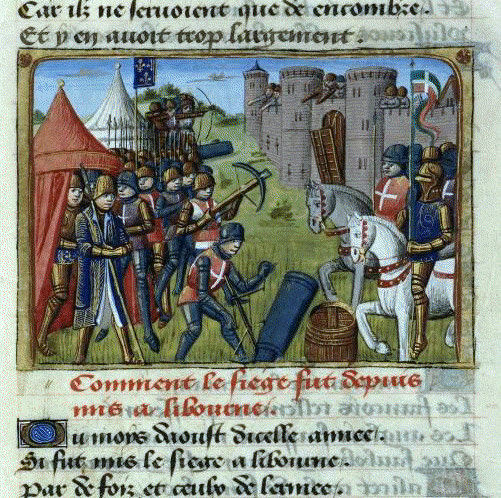 Car ilz ne servoient que de encombre.
Et y en avoit trop largement.
Comment le siege fut depuis
mis a libourne.
Du moys daoust dicelle annee.
Si fut mis le siege a libourne.
Par de foiz et ceulx de larmee